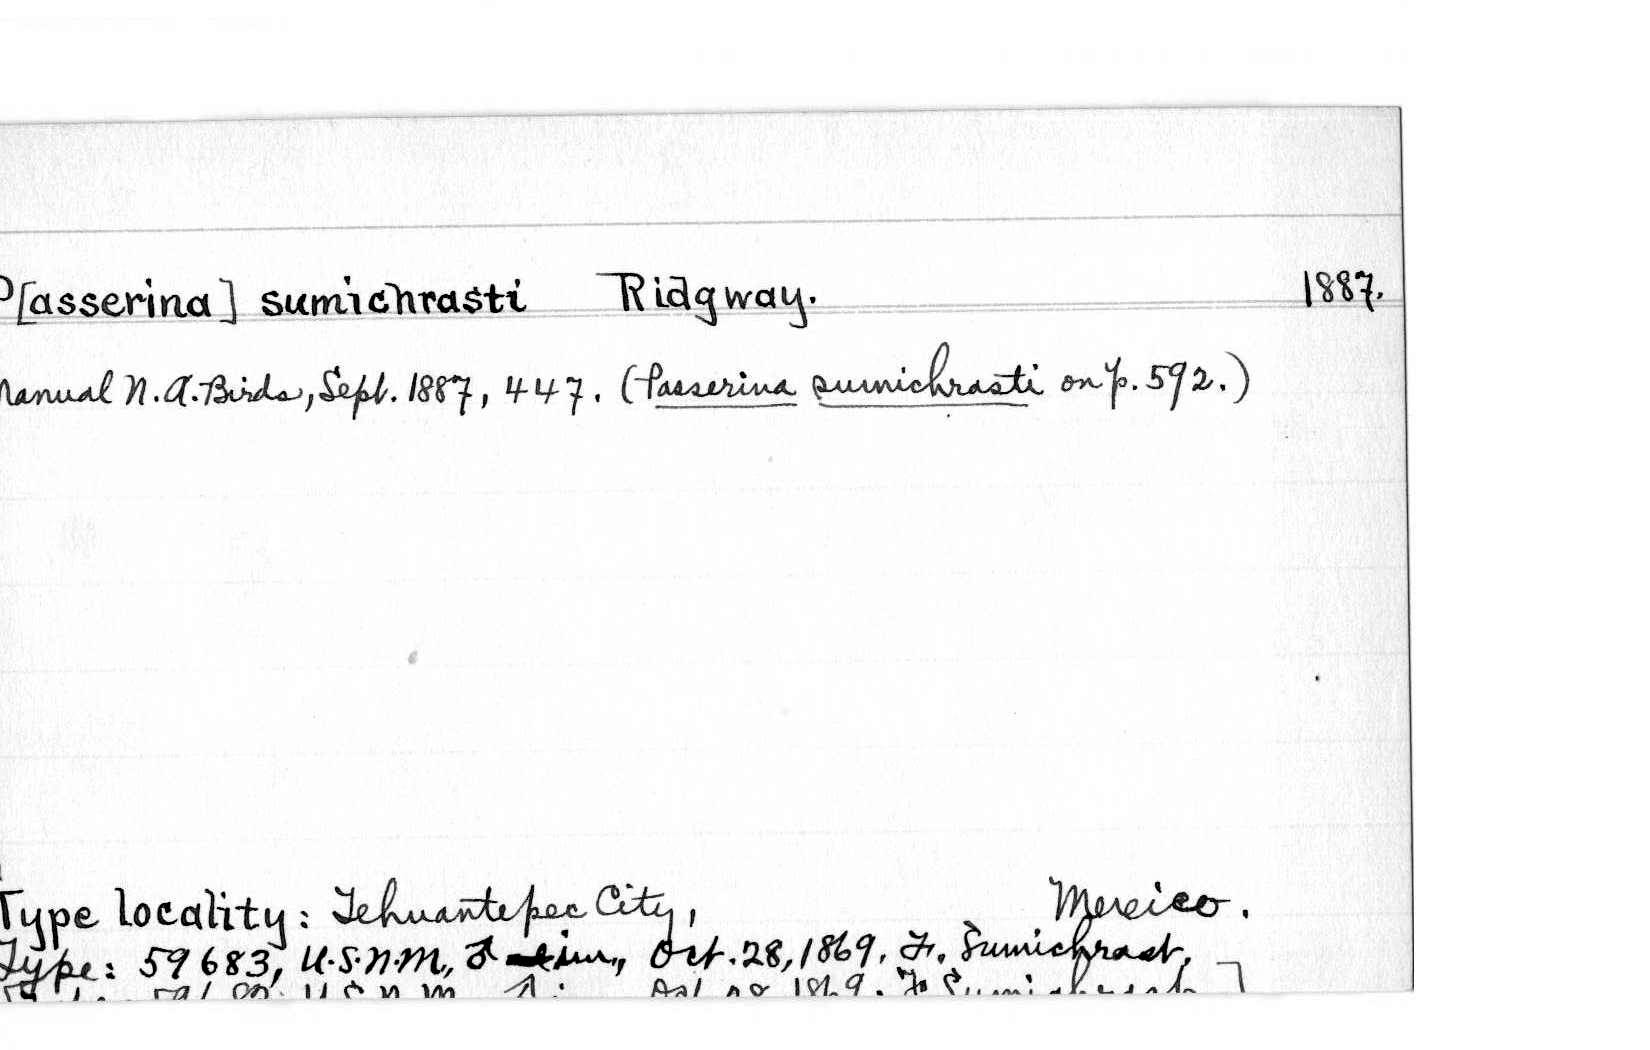 P[asserina] sumichrasti Ridgway. 1887.
Manual N.A. Birds, Sept. 1887, 447. (Passerina sumichrasti on p. 592.)
Type locality: Tehuantepec City, Mexico.
Type: 59683, U.S.N.M., ♂ im., Oct. 28, 1869. F. Sumichrast.
U.S.N.M. 1869. F. Sumichrast ]